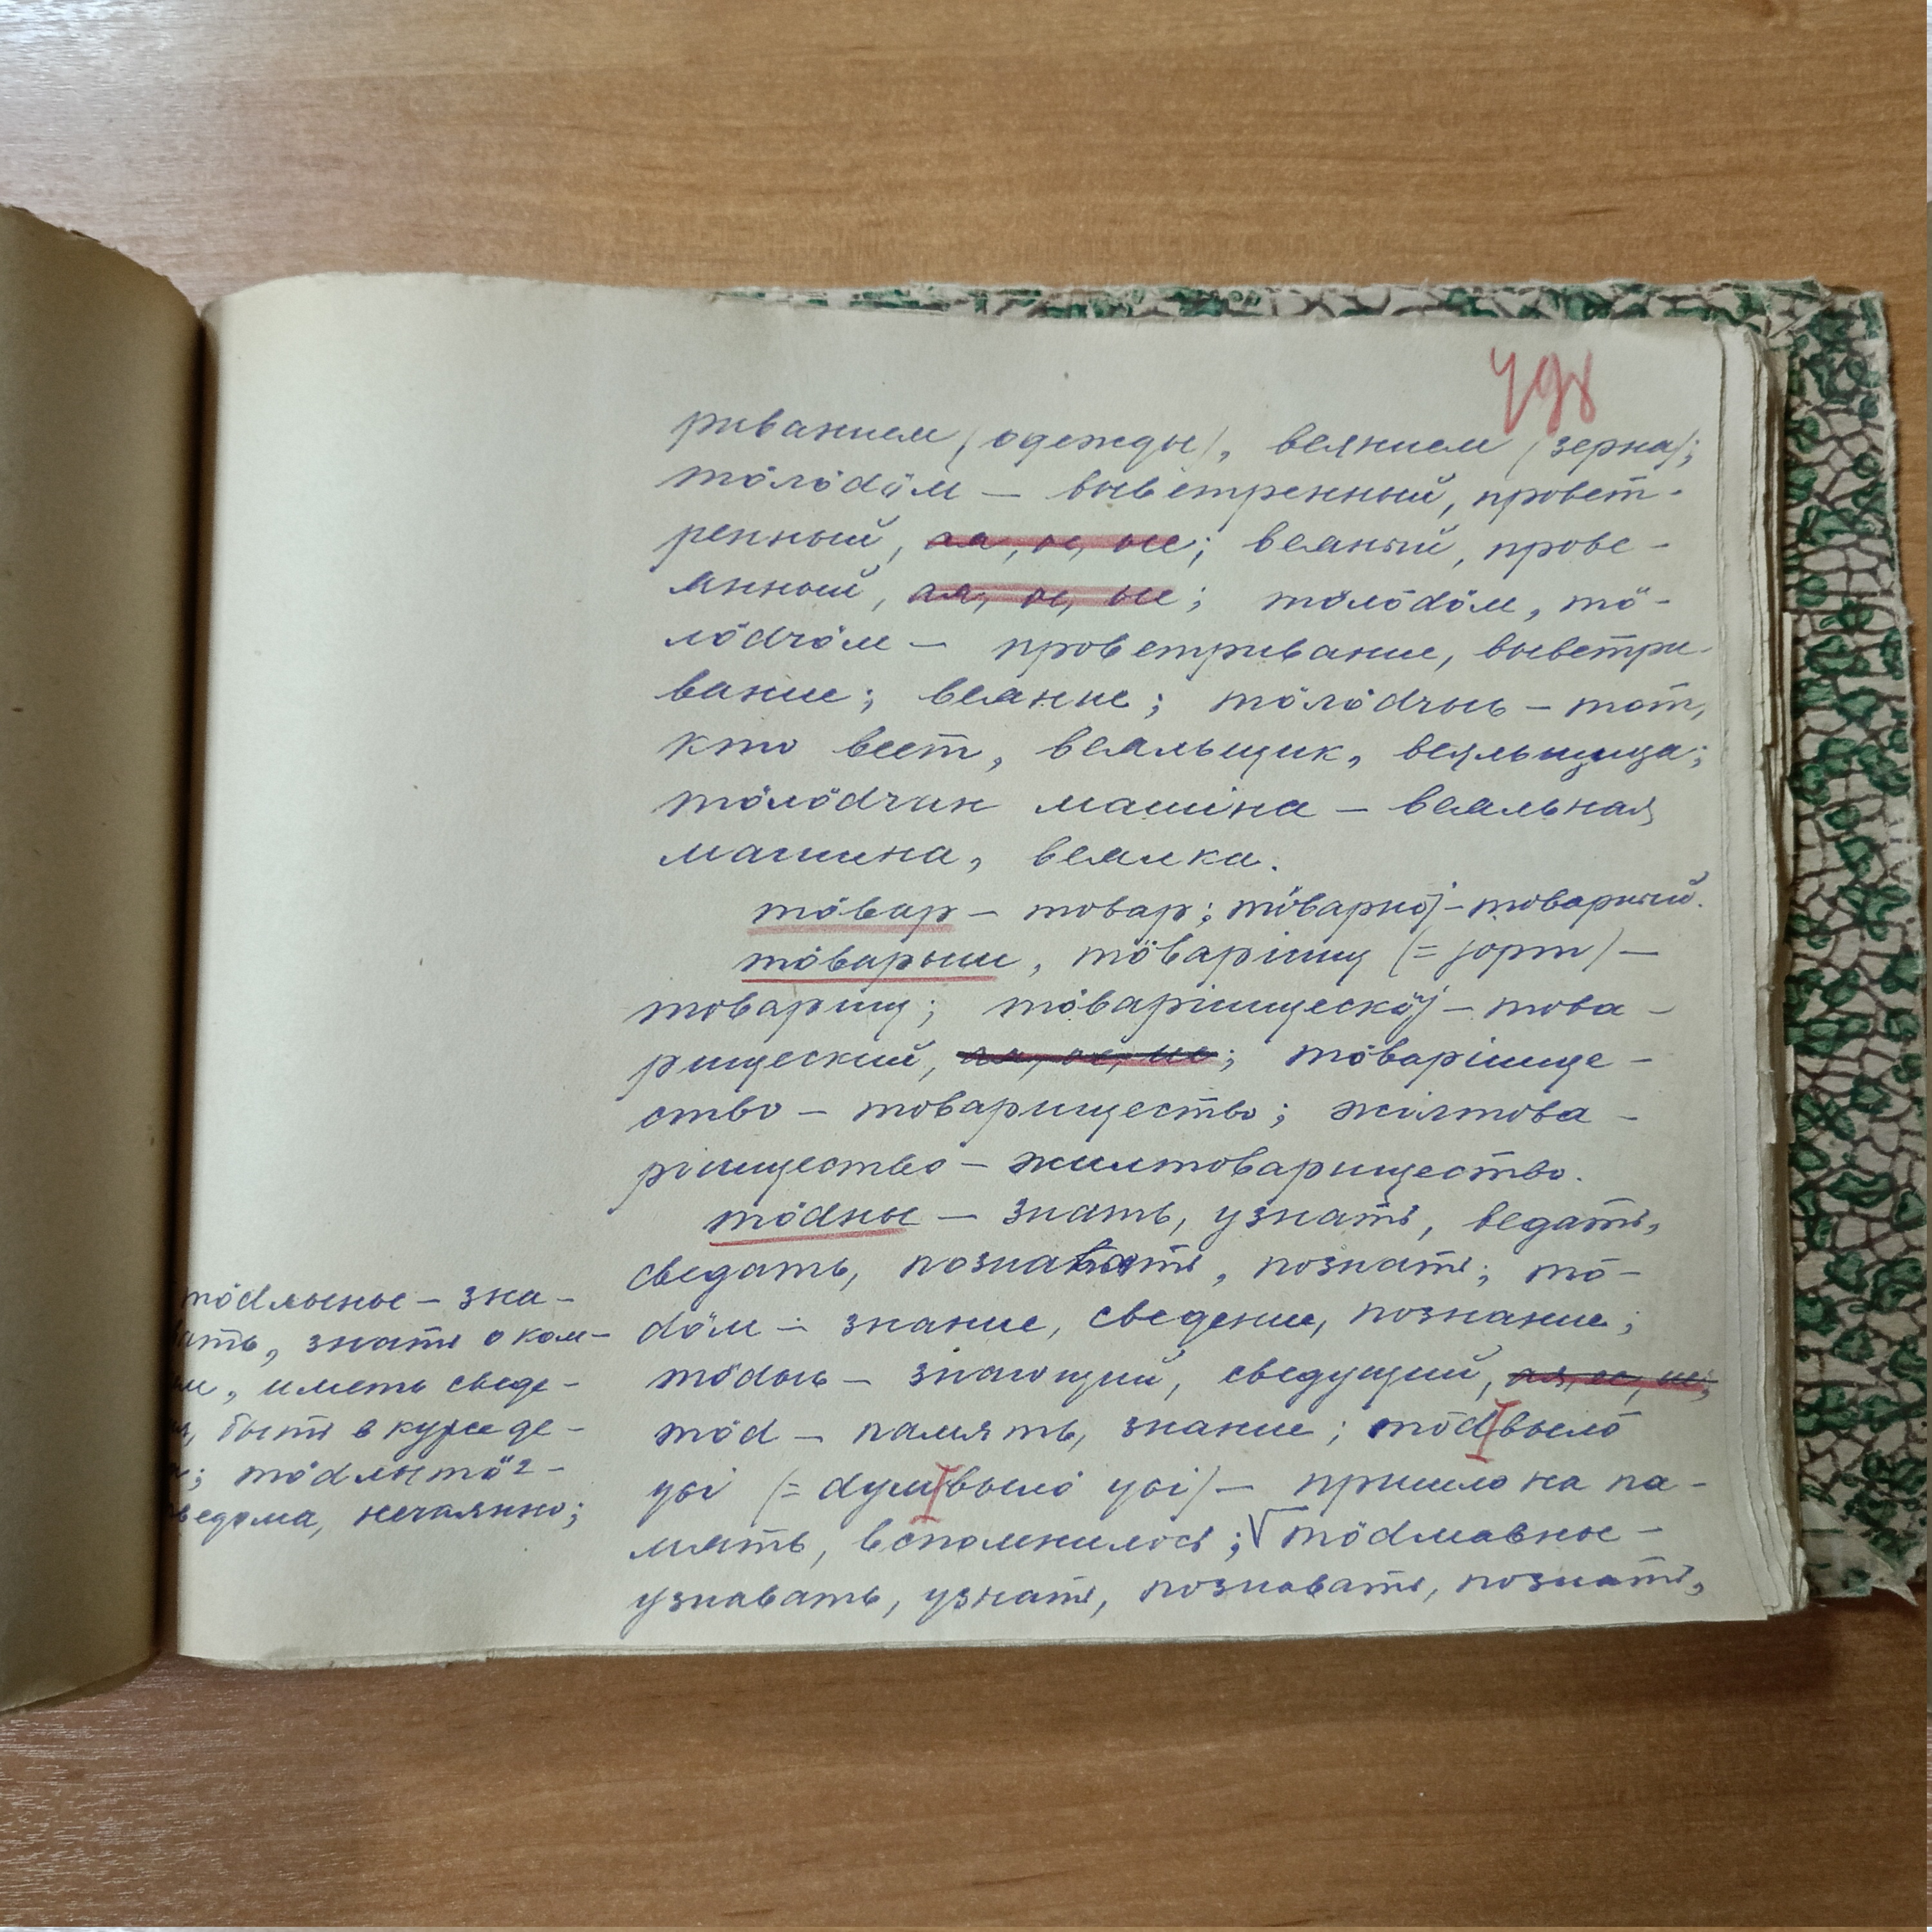 498
риванием (одежды), веянием (зерна);
тӧлӧdӧм — выветренный, провет-
ренный, ая, ое, ые; веяный, прове-
янный, ая, ое, ые; тӧлӧdӧм, тӧ-
лӧdчӧм — проветривание, выветри-
вание; веяние; тӧлӧdчыс — тот,
кто веет, веяльщик, веяльщица;
тӧлӧdчан машіна — веяльная
машина, веялка.
тӧвар — товар; тӧварнӧj — товарный.
тӧварыш, тӧваріщ (= jорт) —
товарищ; тӧваріщескӧj — това-
рищеский, ая, ое, ие; тӧваріще-
ство — товарищество; жілтова-
ріщество — жилтоварищество.
тӧdны — знать, узнать, ведать,
сведать, познавать, познать; тӧ-
dӧм — знание, сведение, познание;
тӧdыс — знающий, сведущий, ая, ее, ие;
тӧd — память, знание; тӧd вылӧ
усі (= dум вылӧ усі) — пришло на па-
мять, вспомнилось; √ тӧdмавны —
узнавать, узнать, познавать, познать,
тӧdлыны — зна-
вать, знать о ком-
, иметь сведе-
, быть в курсе де-
; тӧdлытӧг —
ведома, нечаянно;